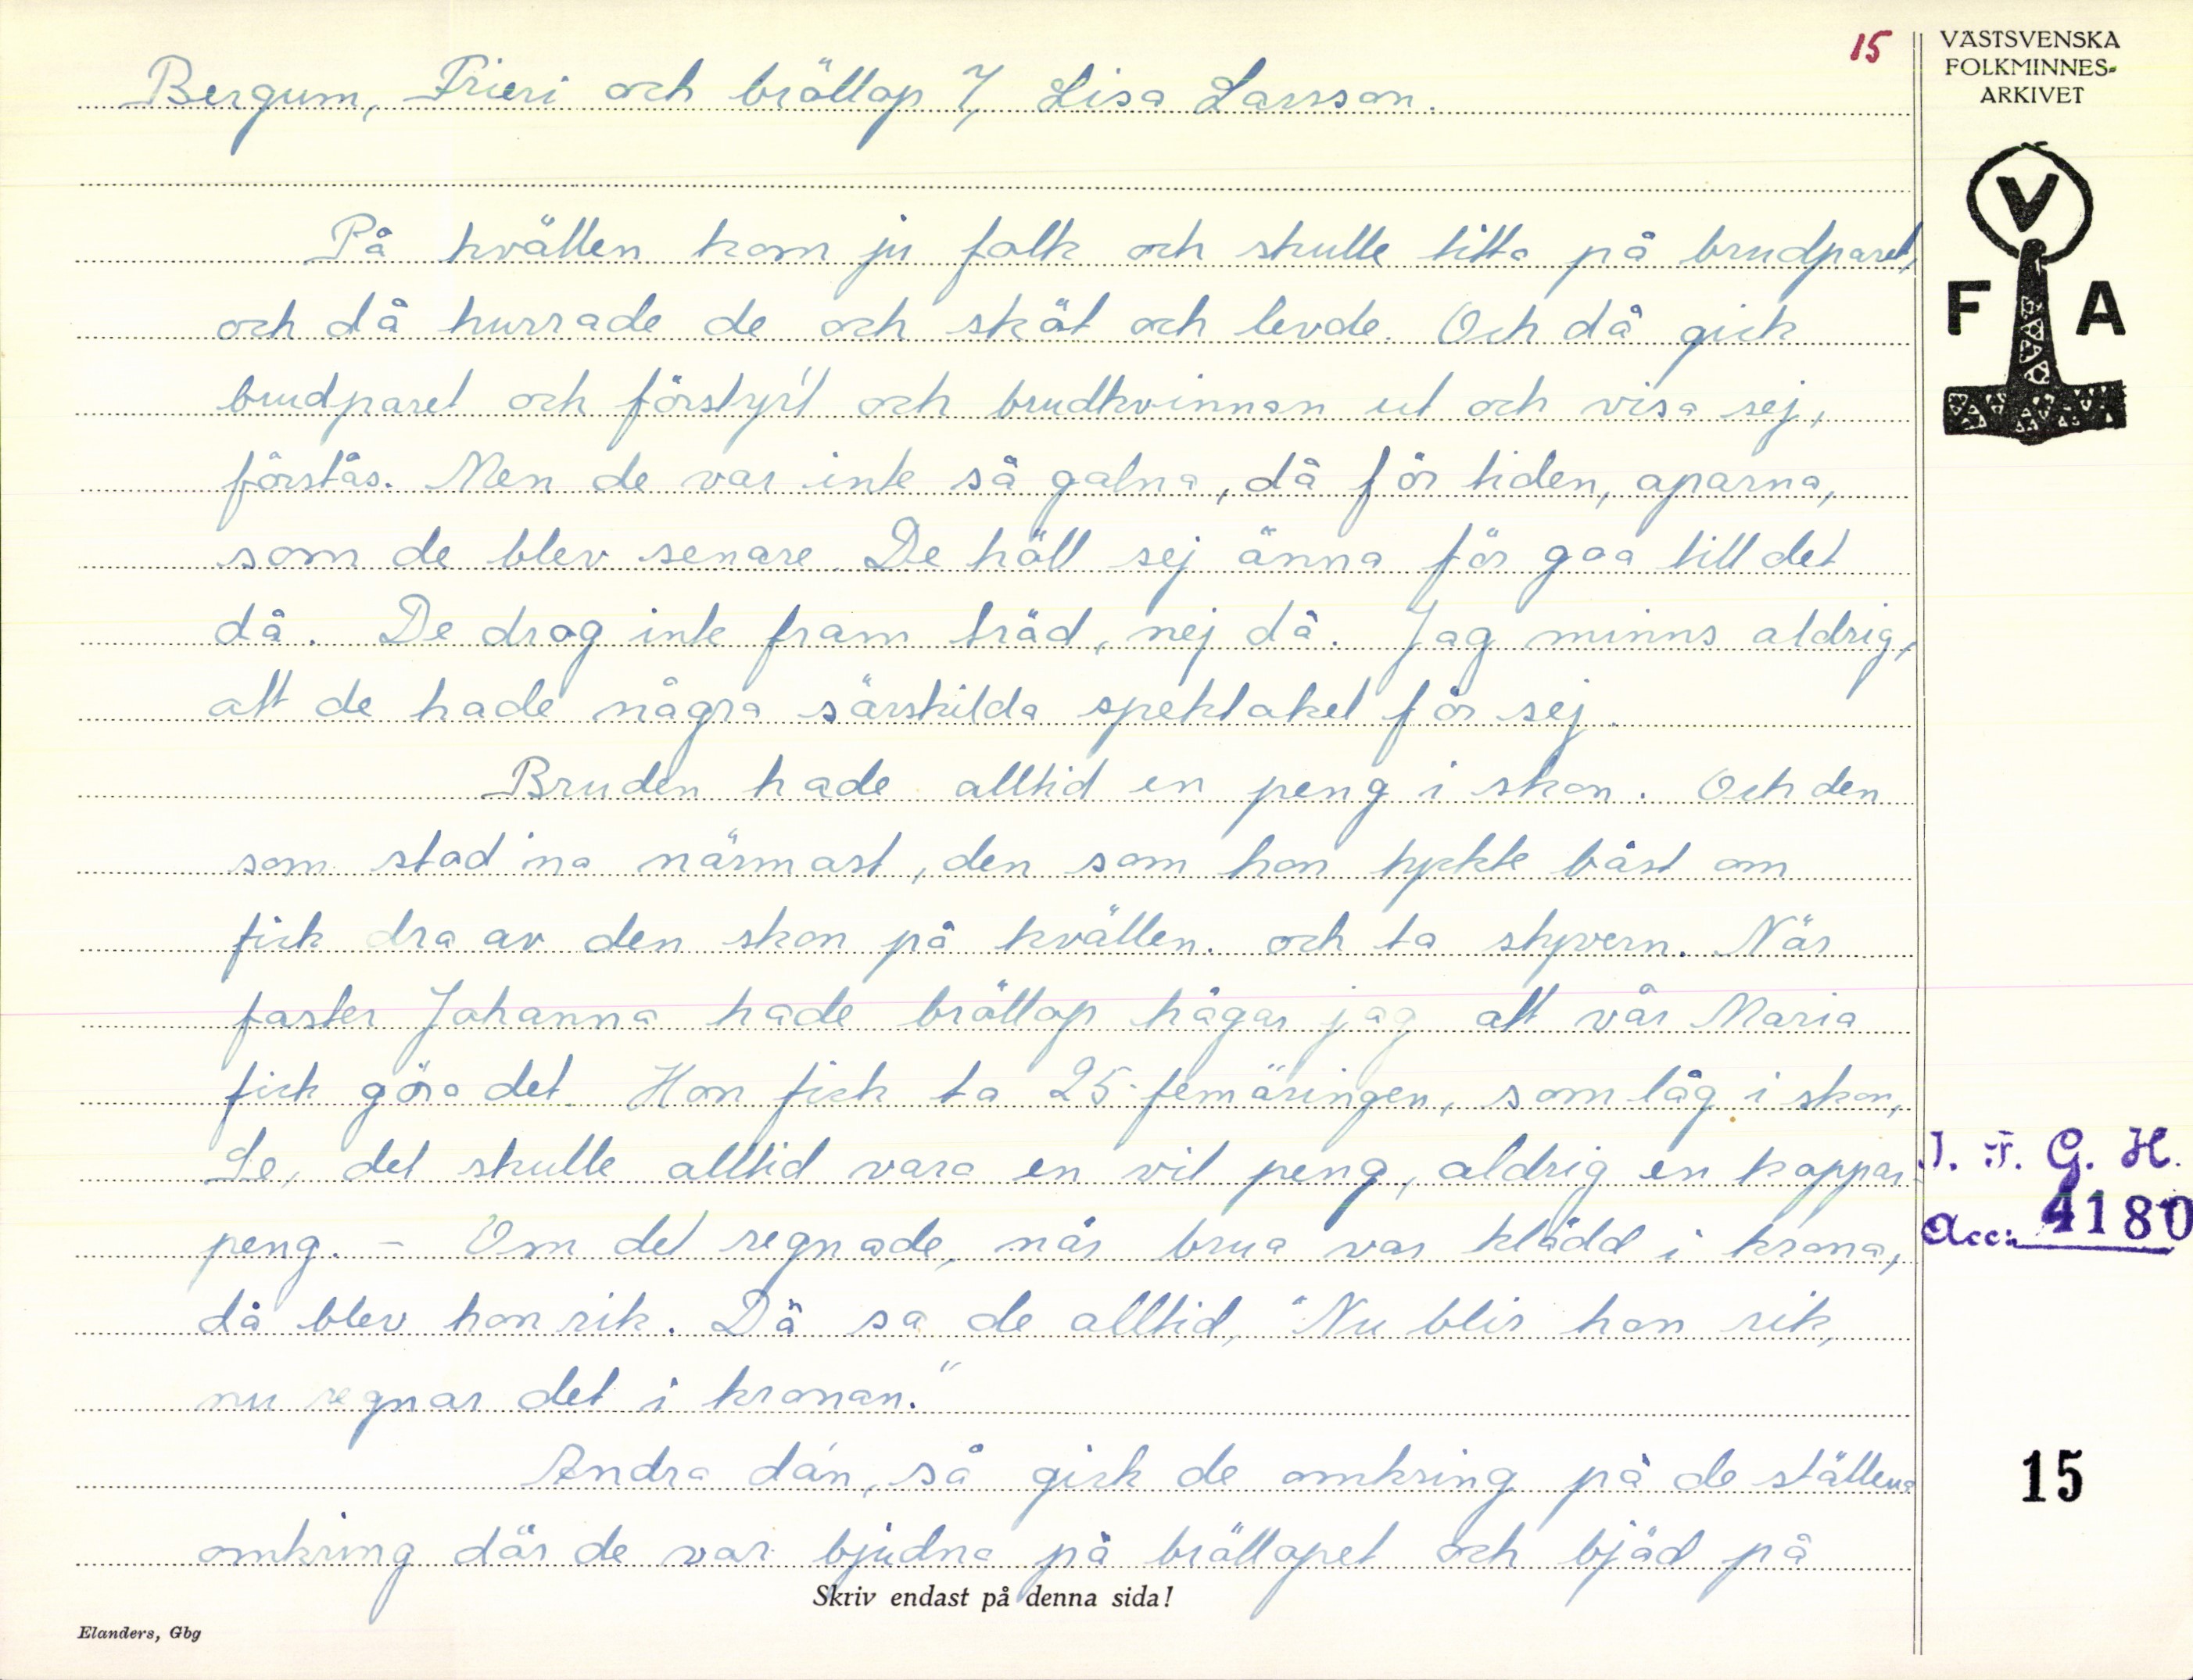 15
VÄSTSVENSKA
FOLKMINNES-
ARKIVET
V
F A
Bergum, Frieri och bröllop 7, Lisa Larsson.
På kvällen kom ju folk och skulle titta på brudparet,
och då hurrade de och sköt och levde. Och då gick
brudparet och förstyr't och brudkvinnan ut och visa sej,
förstås. Men de var inte så galna, då för tiden, aparna,
som de blev senare. De höll sej änna för goa till det
då. De drog inte fram träd, nej då. Jag minns aldrig,
att de hade några särskilda spektakel för sej.
Bruden hade alltid en peng i skon. Och den
som stod'na närmast, den som hon tyckte bäst om
fick dra av den skon på kvällen. och ta styvern. När
faster Johanna hade bröllop hågar jag att vår Maria
fick göra det. Hon fick ta 25-femöringen, som låg i skon,
Se, det skulle alltid vara en vit peng, aldrig en koppar-
peng. - Om det regnade, när brua var klädd i krona,
då blev hon rik. Då sa de alltid, "Nu blir hon rik,
nu regnar det i kronan."
Andra dán, så gick de omkring på de ställena
omkring där de var bjudna på bröllopet och bjöd på
I. F. G. H.
Acc: 4180
15
Skriv endast på denna sida!
Elanders, Gbg